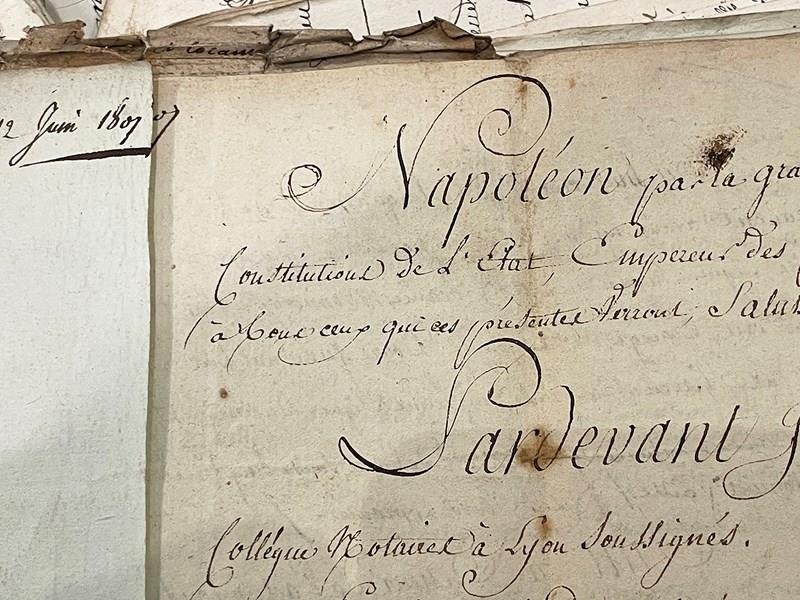 12 Juin 1807
Napoléon par la gra
Constitutions de L'Etat, Empereur des
à tous ceux qui ces présentes verront, Salut
Pardevant
Collégue Notaires à Lyon Soussignés.